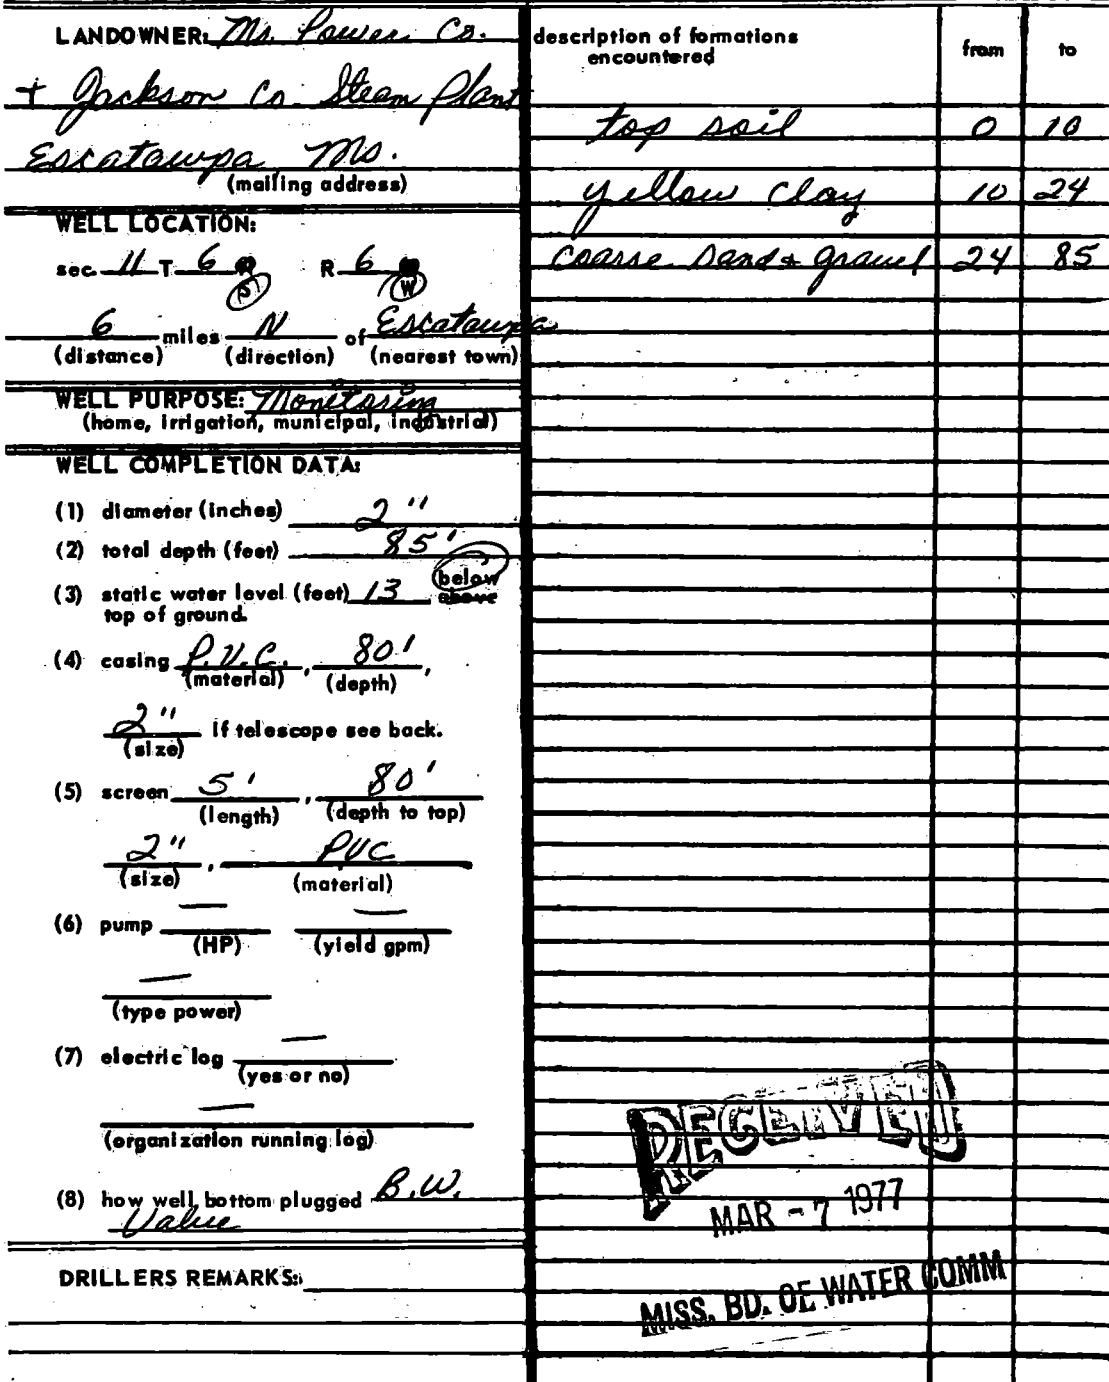 LANDOWNER: Ms. Power Co.
+ Jackson Co. Steam Plant
Escatawpa, Ms.
(mailing address)
WELL LOCATION:
sec. 11 T 6 S R 6 W
6 miles N of Escatawpa
(distance) (direction) (nearest town)
WELL PURPOSE: Monitoring
(home, irrigation, municipal, industrial)
WELL COMPLETION DATA:
(1) diameter (inches) 2"
(2) total depth (feet) 85'
(3) static water level (feet) 13 below above
top of ground.
(4) casing P.V.C., 80',
(material) (depth)
2" If telescope see back.
(size)
(5) screen 5', 80'
(length) (depth to top)
2", PVC
(size) (material)
(6) pump — —
(HP) (yield gpm)
—
(type power)
(7) electric log —
(yes or no)
—
(organization running log)
(8) how well bottom plugged B.W.
Valve
DRILLERS REMARKS:
description of formations encountered from to
top soil 0 10
yellow clay 10 24
coarse sand & gravel 24 85
RECEIVED
MAR - 7 1977
MISS. BD. OF WATER COMM